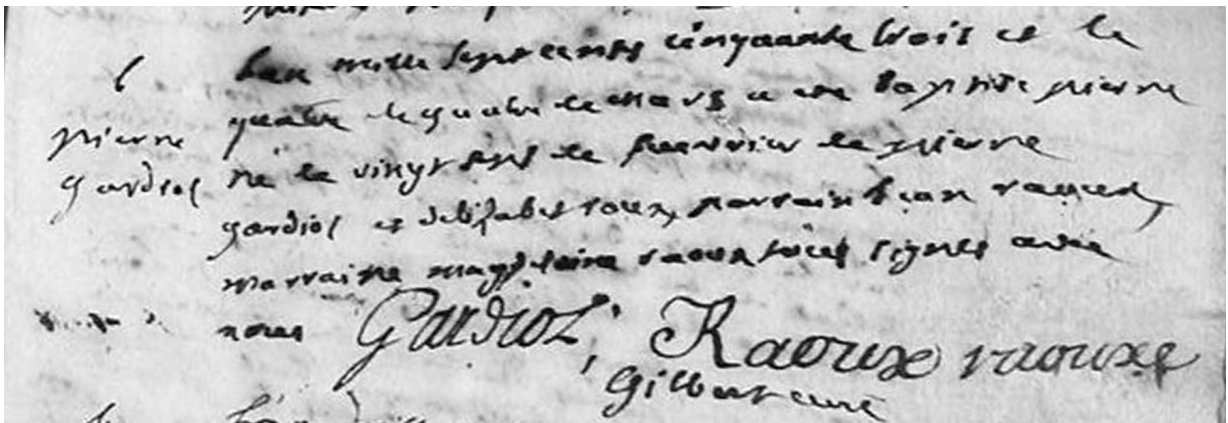 pierne
gardiol
Lan mille sept cents cinquante trois et le
quatre de mars a ete baptise pierne
né le vingt sept de feuvrier de pierne
gardiol et delizabet roux, parrain Jean raoux,
marraine magdelaine raoux signes avec
nous Gardiol, Raoux raouxe
Gilbert curé